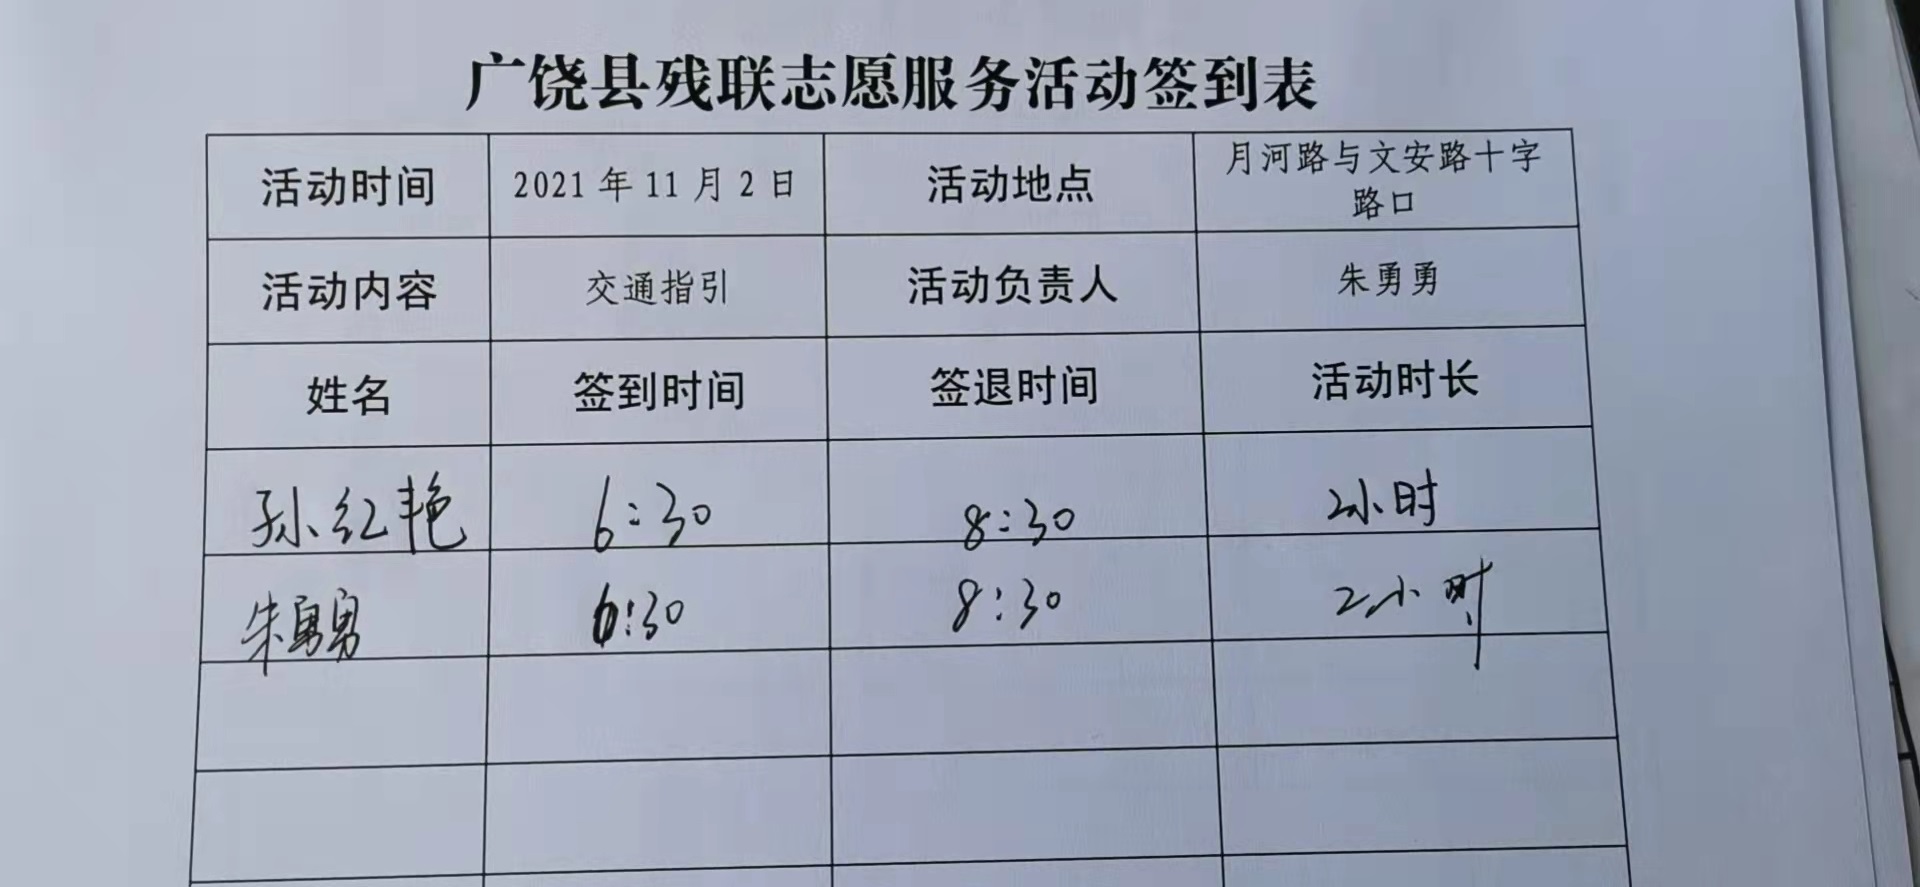 广饶县残联志愿服务活动签到表
活动时间 2021年11月2日 活动地点 月河路与文安路十字
路口
活动内容 交通指引 活动负责人 朱勇勇
姓名 签到时间 签退时间 活动时长
孙红艳 6:30 8:30 2小时
朱勇勇 6:30 8:30 2小时